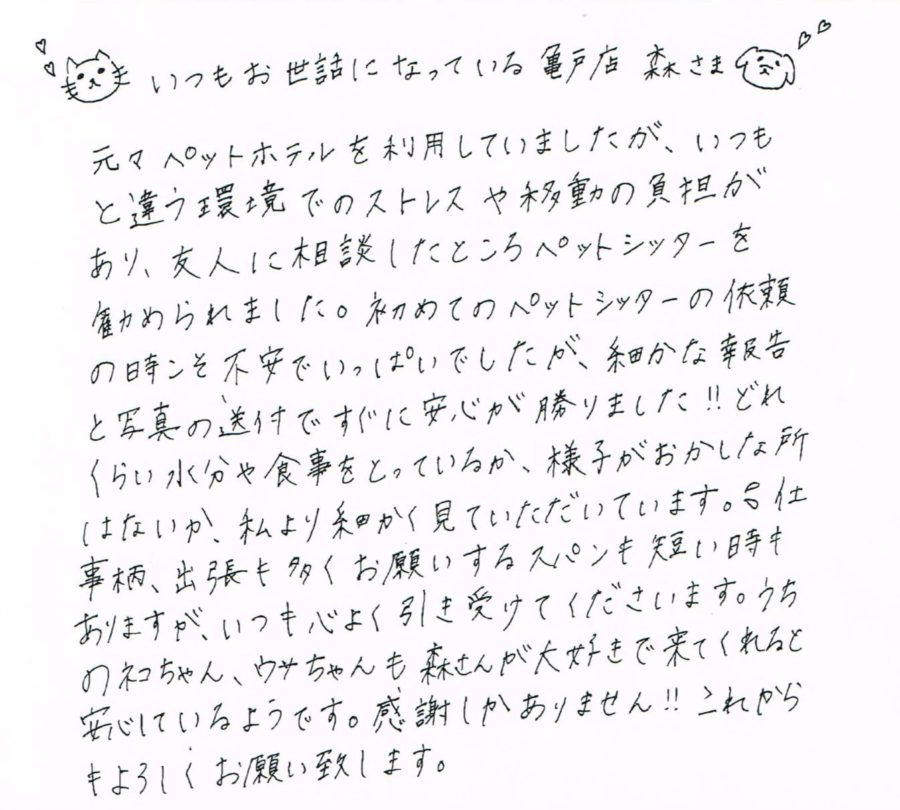 いつもお世話になっている亀戸店 森さま
元々ペットホテルを利用していましたが、いつも
と違う環境でのストレスや移動の負担が
あり、友人に相談したところペットシッターを
勧められました。初めてのペットシッターの依頼
の時こそ不安でいっぱいでしたが、細かな報告
と写真の送付ですぐに安心が勝りました!!どれ
くらい水分や食事をとっているか、様子がおかしな所
はないか、私より細かく見ていただいています。仕
事柄、出張も多くお願いするスパンも短い時も
ありますが、いつも心よく引き受けてくださいます。うち
のネコちゃん、ウサちゃんも森さんが大好きで来てくれると
安心しているようです。感謝しかありません!!これから
もよろしくお願い致します。